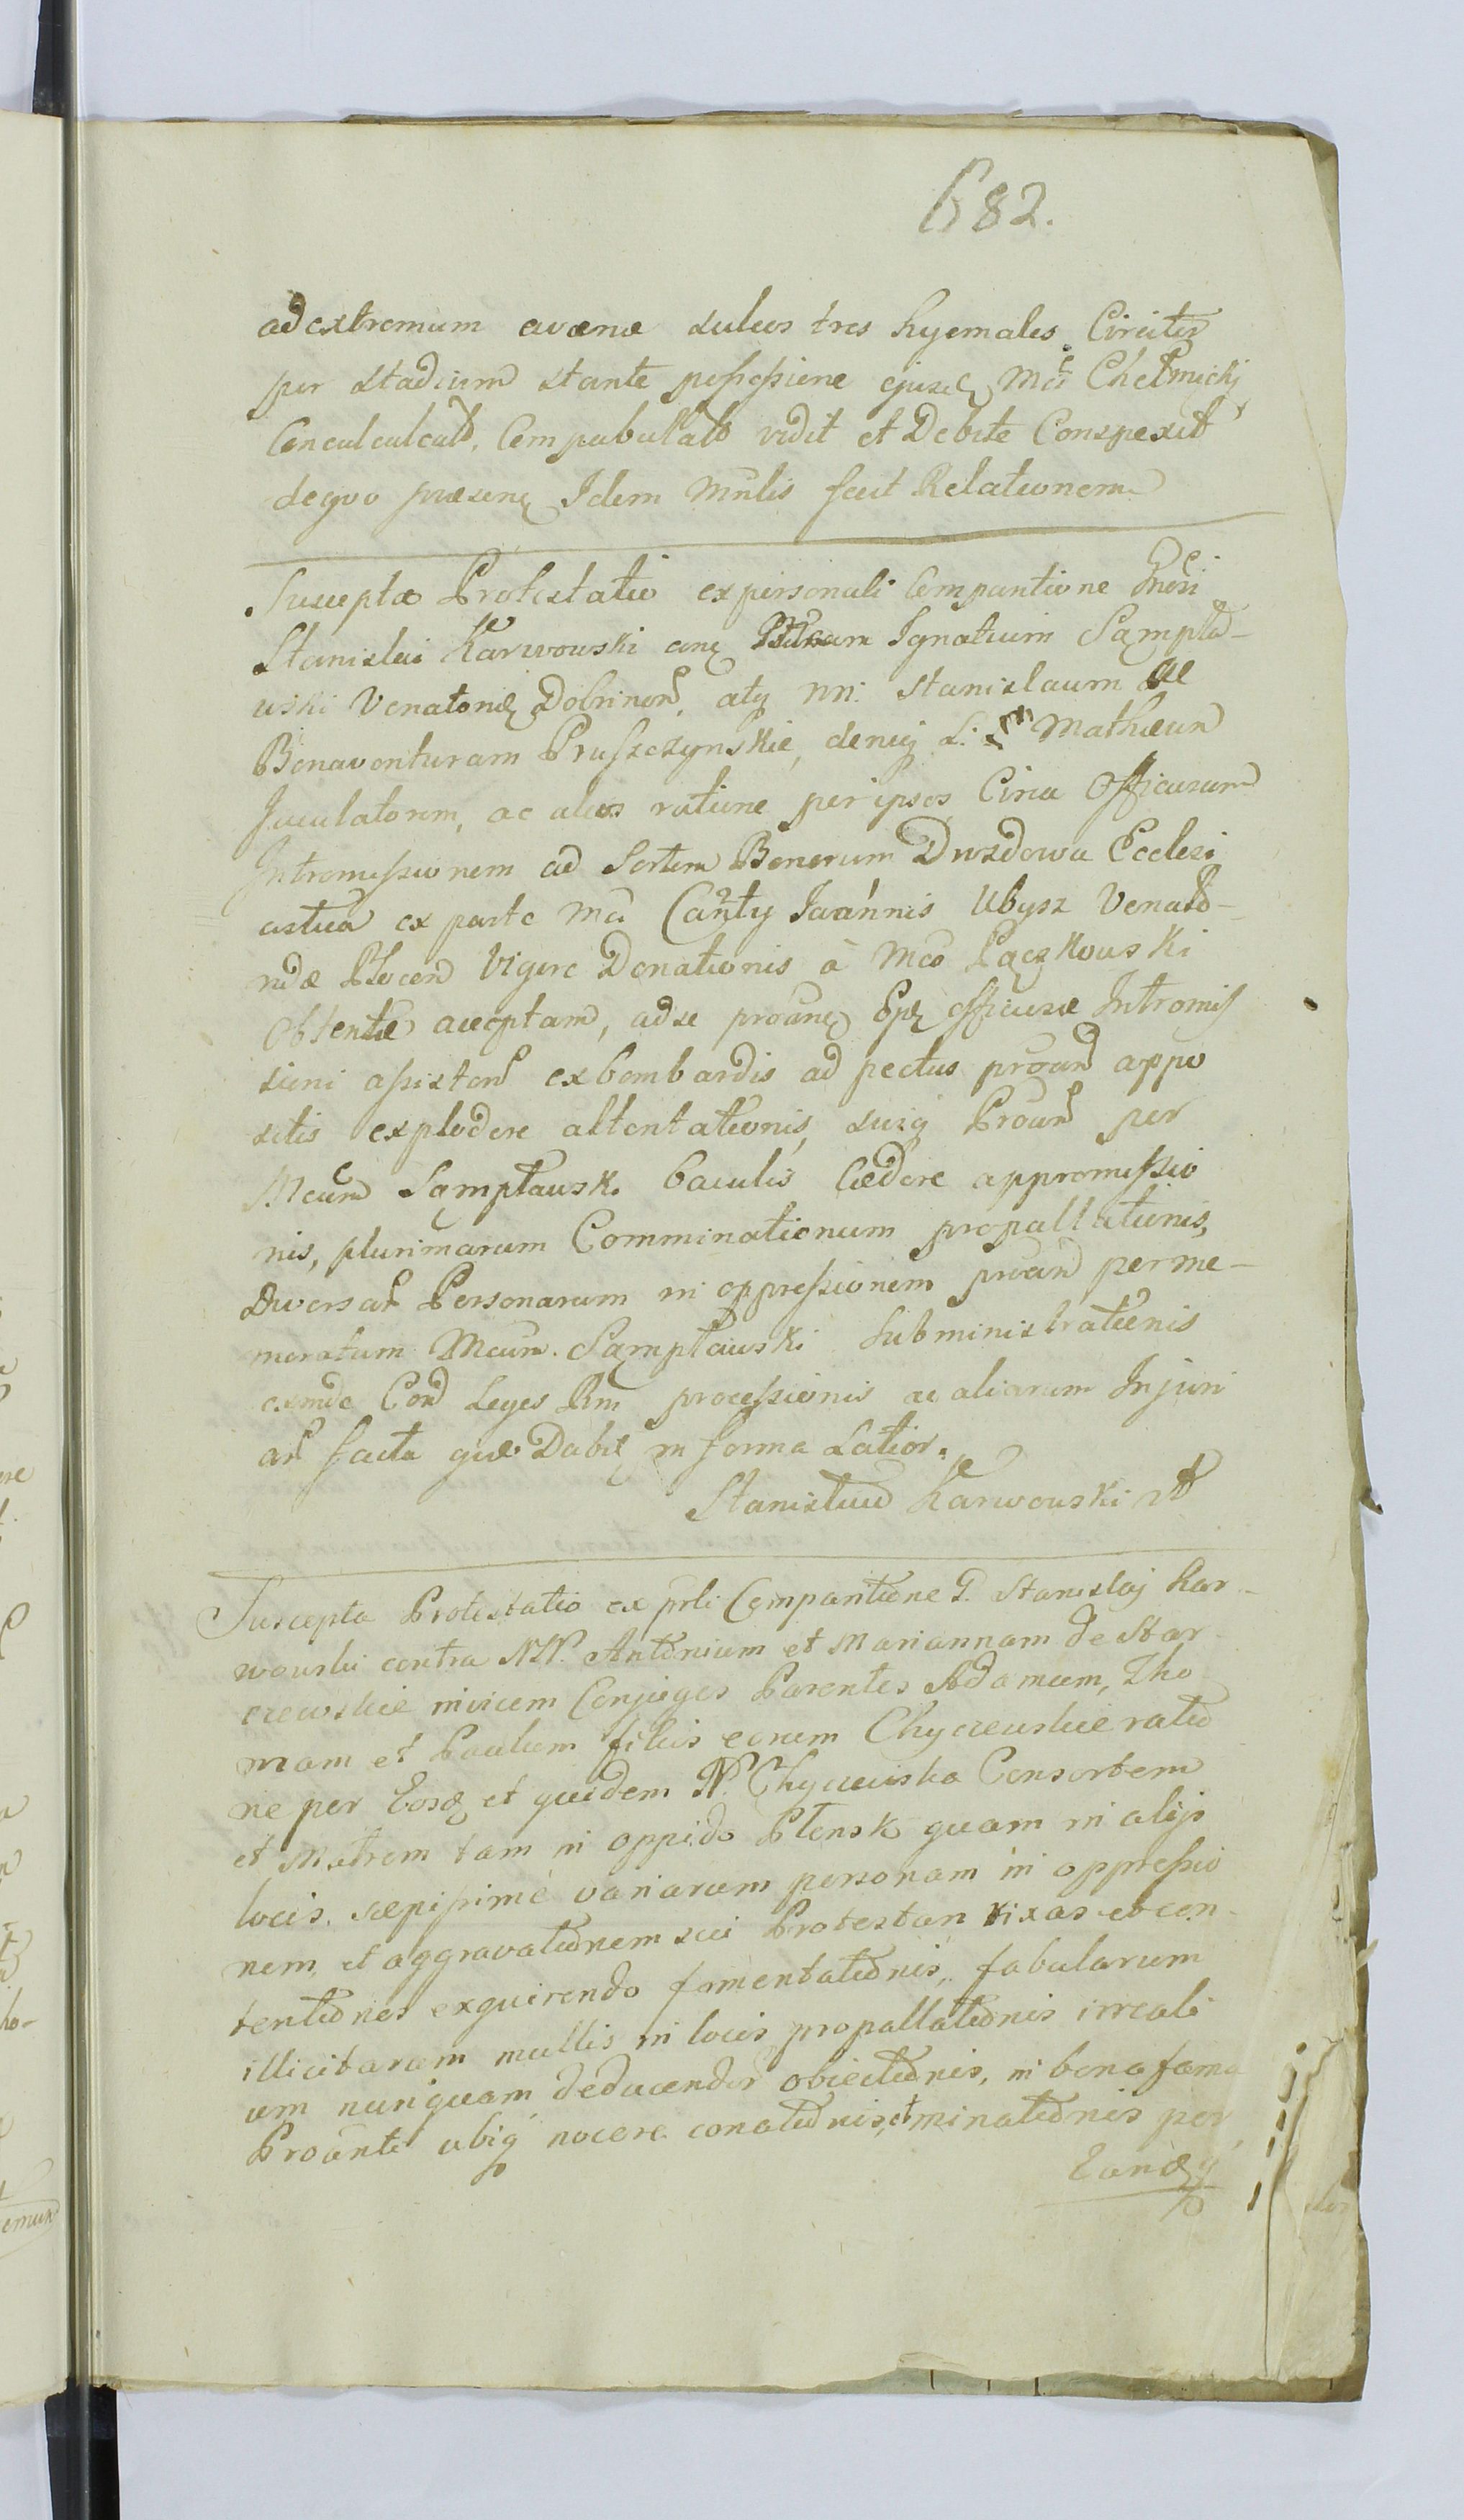 682.
ad extremum avenæ sulcos tres hyemales Circiter
per stadium stante possessione ejusd Mci Chełmicki
Conculcatā, Compabulatā vidit et Debite Conspexit
de quo præsenē Idem Mnlis fecit Relationem
Suscepta Protestatio ex personali Comparitione Gnosi
Stanislai Karwowski conē Ignatium Sąmpła-
wski Venatoridē Dobrinen, atq NN: Stanislaum ac
Bonaventuram Pruszczynskie, deniq L: Mathæum
Jaculatorem, ac alios ratione per ipsos Circa Officiosam
Intromissionem ad Sortem Bonorum Drozdowa Ecclesi
astica ex parte Mci Canty Joannis Ubysz Venato-
ridæ Plocen Vigore Donationis à Mco Pączkowski
Obtentæ acceptam, ad se proanē Epē officiosæ Intromis
sioni assisten ex bombardis ad pectus proan appo
sitis explodere attentationis, suiq Proan per
Mcum Sąmpławsk. baculis Cædere appromissio
nis, plurimarum Comminationum propallationis,
Diversar Personarum in oppressionem proan per me-
moratum Mcum. Sąmpławski Subministrationis
exinde Con Leges Rni processionis ac aliarum Injuri
ar facta quæ Dabit in forma Latior.
Stanisław Karwowski
Suscepta Protestatio ex prli Comparitione G. Stanislaj Kar-
wowski contra NN. Antonium et Mariannam de Star
czewskie invicem Conjuges Parentes Adamum, Tho
mam et Paulum filios eorum Chyczewskie ratio
ne per Eosd et quidem N. Chyczewska Consortem
et Matrem tam in oppido Płonsk quam in alijs
locis, sæpissimè variarum personam in oppressio
nem, et aggravationem sui Protestan rixas et con-
tentiones exquirendo fomentationis, fabularum
illicitarum multis in locis propallationis irreali
um nunquam deducendor obiectionis, in bona fama
Proanti ubiq nocere conationis, et minationis per
Eandq